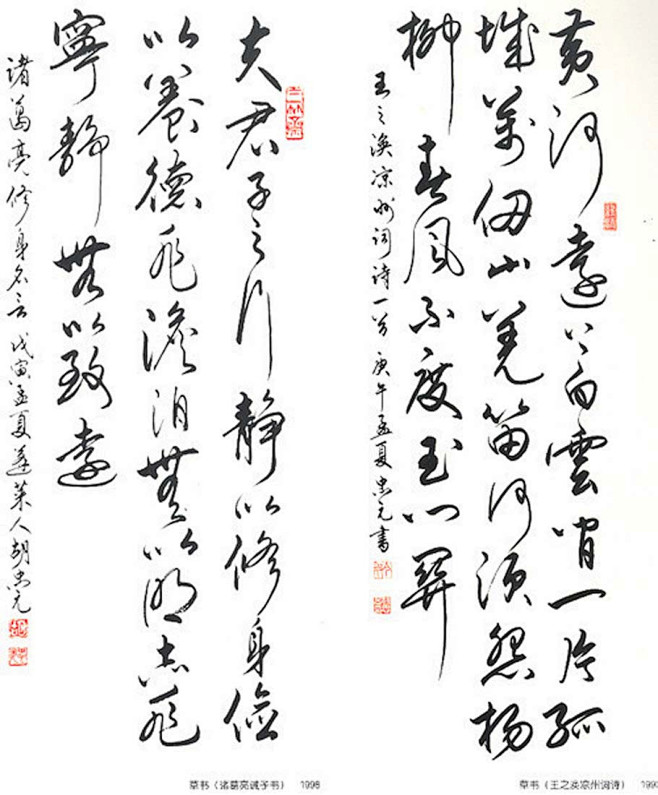 黄河遠上白雲间一片孤
城萬仞山羌笛何须怨杨
柳春風不度玉门關
王之涣凉州词诗一首 庚午孟夏忠元書
夫君子之行静以修身儉
以養德非澹泊無以明志非
寧静無以致遠
诸葛亮修身名言 戊寅孟夏蓬莱人胡忠元
草书（诸葛亮诫子书） 1998
草书（王之涣凉州词诗）